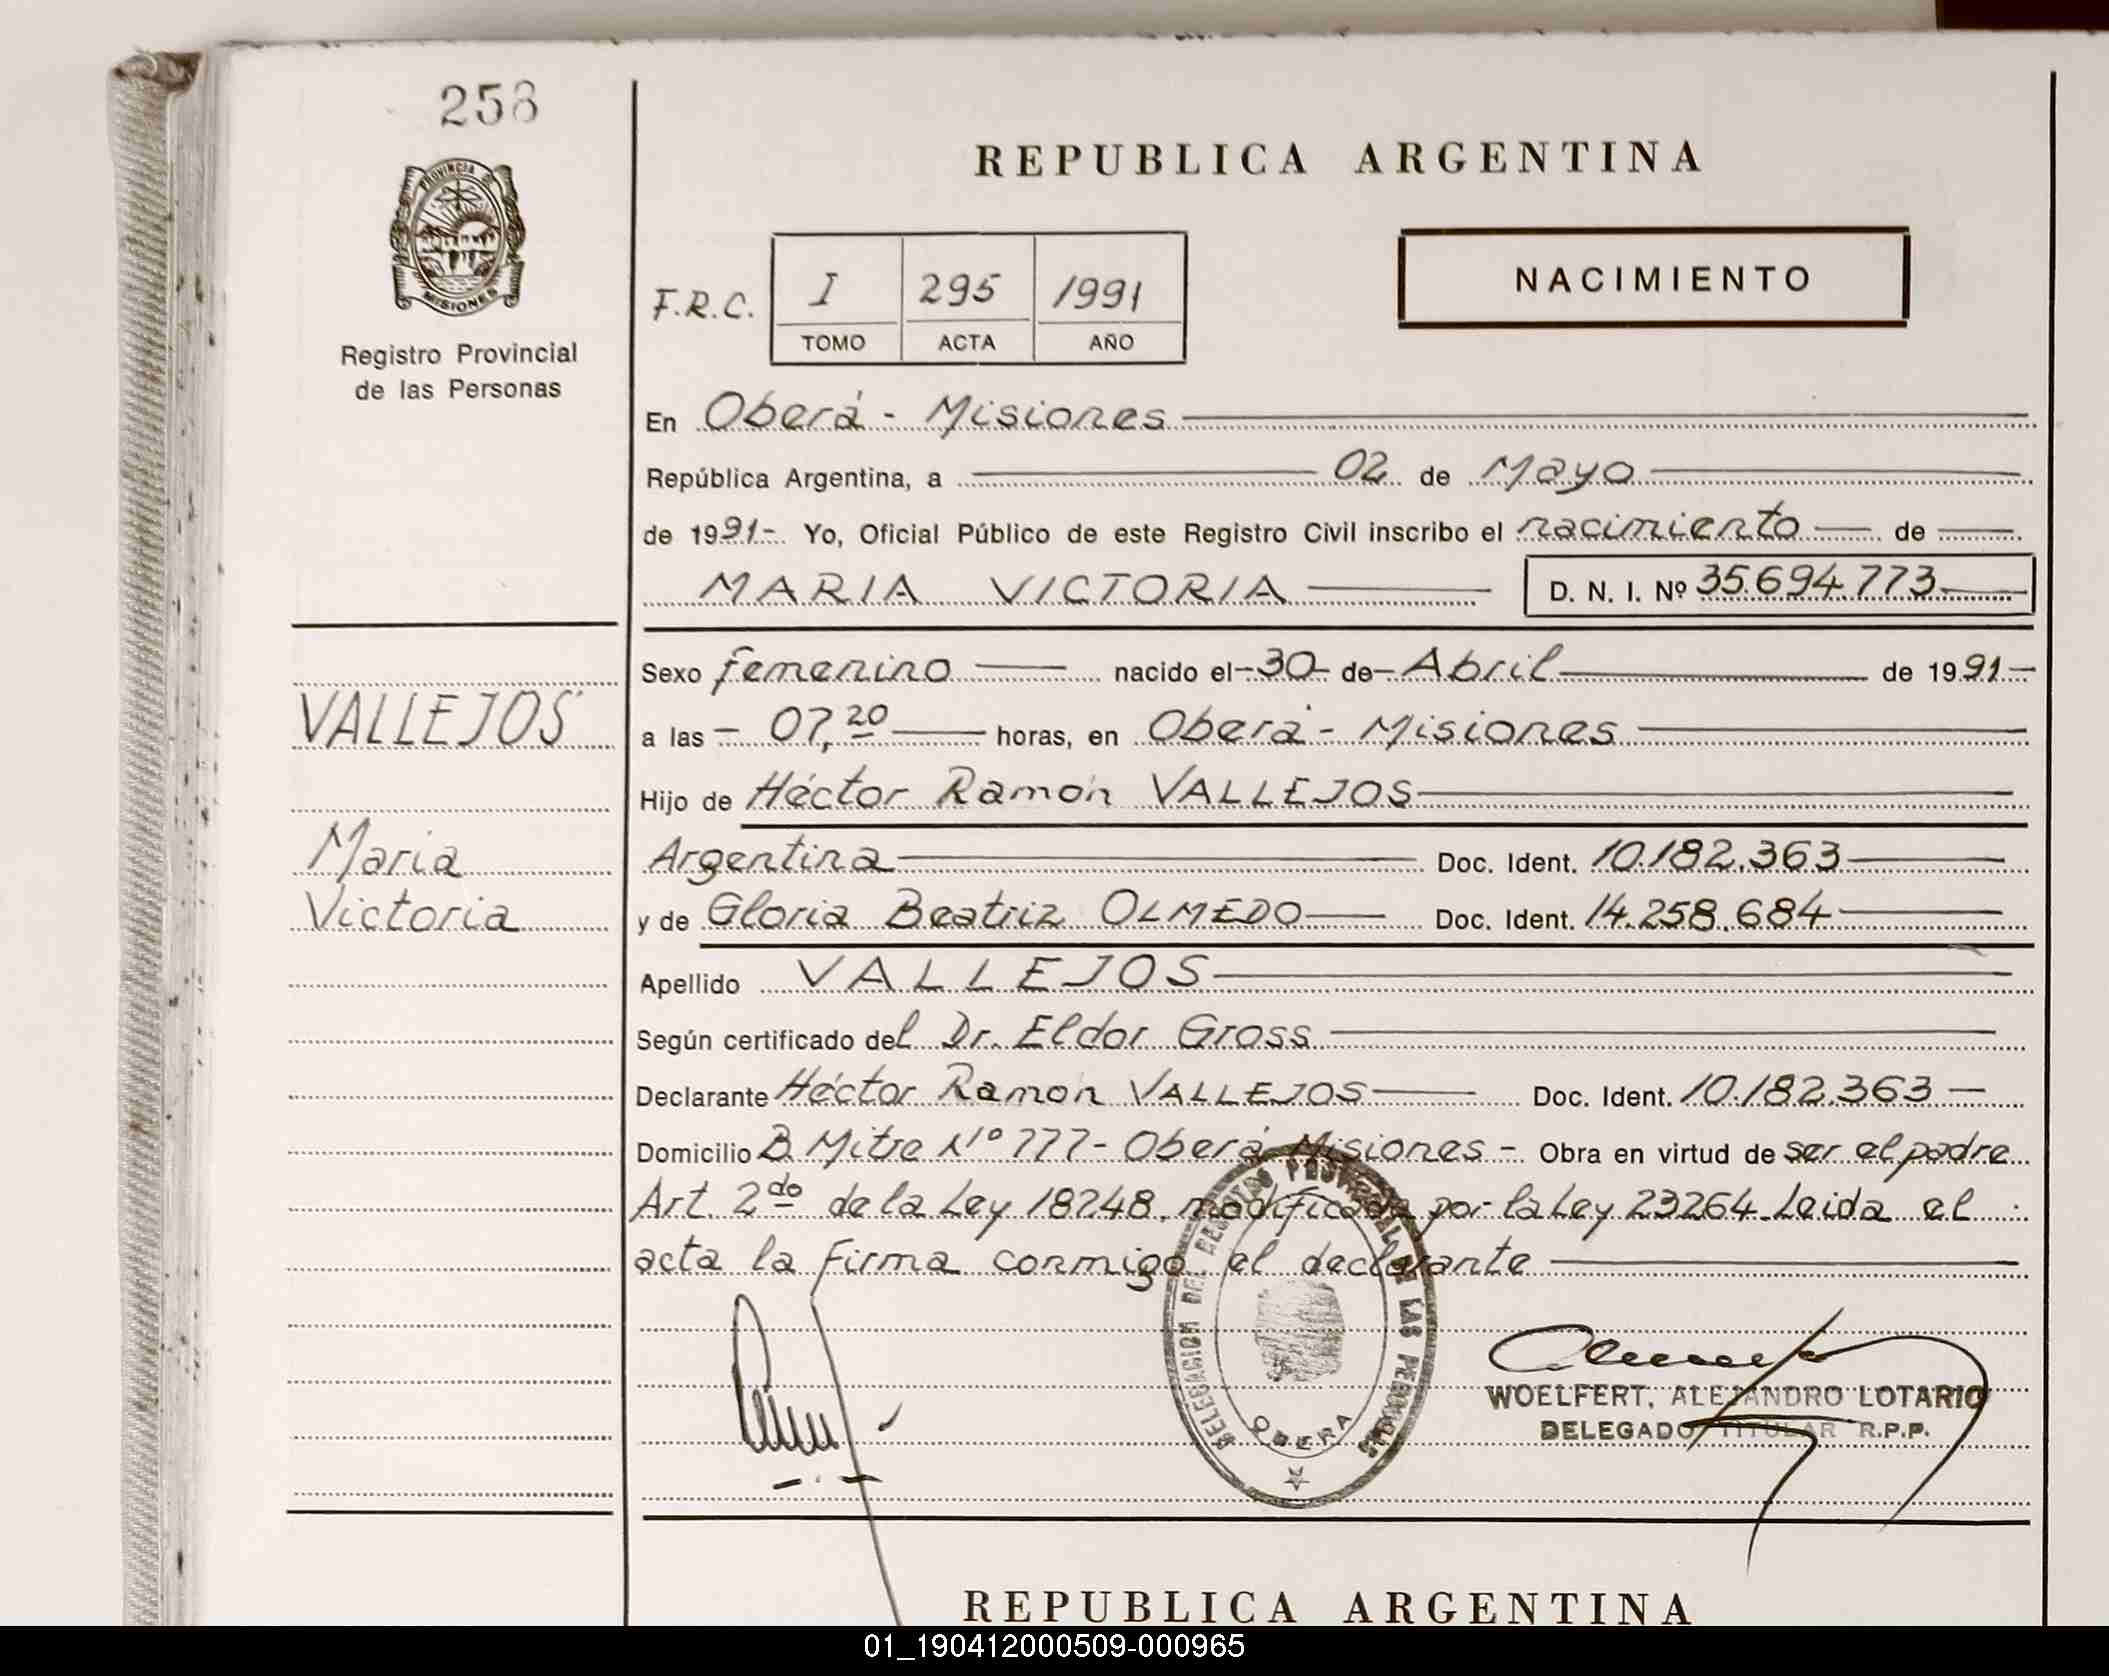 258
PROVINCIA
MISIONES
Registro Provincial
de las Personas
VALLEJOS
Maria
Victoria
REPUBLICA ARGENTINA
F.R.C. I 295 1991
TOMO ACTA AÑO
NACIMIENTO
En Oberá - Misiones
República Argentina, a 02 de Mayo
de 1991- Yo, Oficial Público de este Registro Civil inscribo el nacimiento de
MARIA VICTORIA D. N. I. Nº 35.694.773
Sexo femenino nacido el 30 de Abril de 1991
a las 07,20 horas, en Oberá - Misiones
Hijo de Héctor Ramón VALLEJOS
Argentina Doc. Ident. 10.182.363
y de Gloria Beatriz OLMEDO Doc. Ident. 14.258.684
Apellido VALLEJOS
Según certificado del Dr. Eldor Gross
Declarante Héctor Ramón VALLEJOS Doc. Ident. 10.182.363
Domicilio B. Mitre Nº 777 - Oberá Misiones - Obra en virtud de ser el padre
Art. 2do de la Ley 18248, modificada por la Ley 23264. Leida el
acta la firma conmigo el declarante
DELEGACION DEL REGISTRO PROVINCIAL DE LAS PERSONAS
OBERA
WOELFERT, ALEJANDRO LOTARIO
DELEGADO TITULAR R.P.P.
REPUBLICA ARGENTINA
01_190412000509-000965